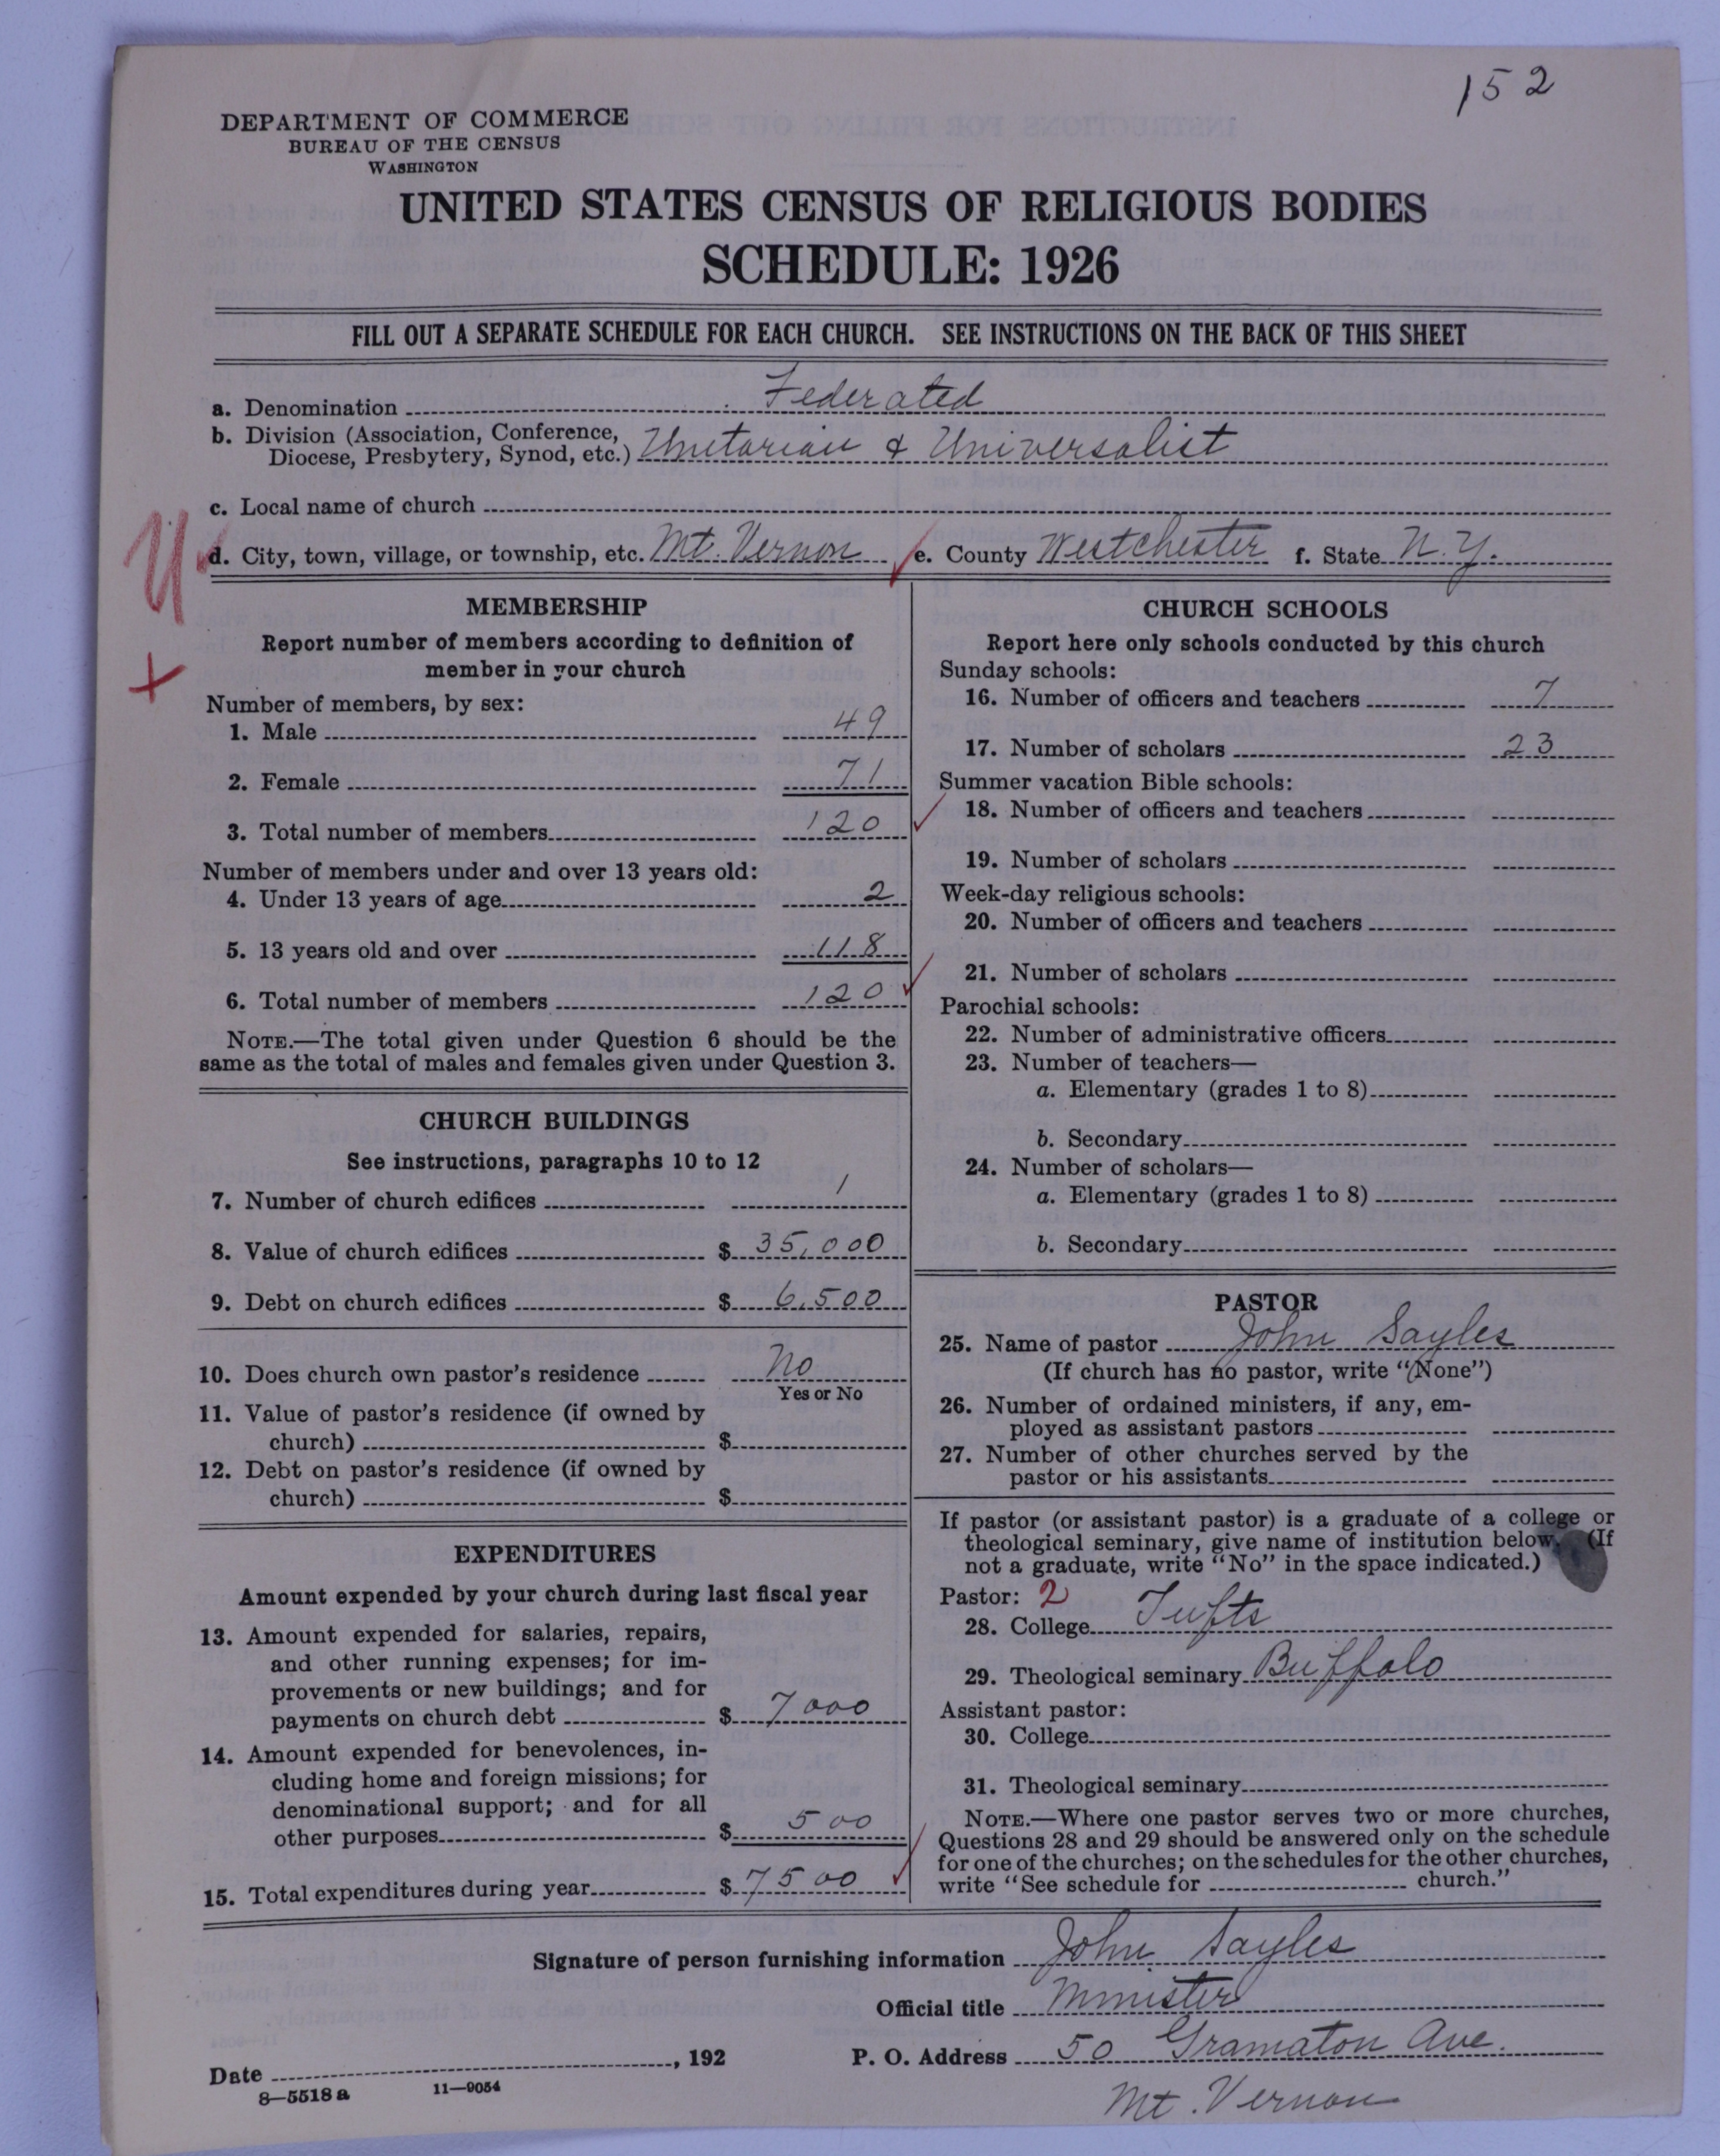 152
DEPARTMENT OF COMMERCE
BUREAU OF THE CENSUS
WASHINGTON
UNITED STATES CENSUS OF RELIGIOUS BODIES
SCHEDULE: 1926
FILL OUT A SEPARATE SCHEDULE FOR EACH CHURCH. SEE INSTRUCTIONS ON THE BACK OF THIS SHEET
a. Denomination Federated
b. Division (Association, Conference,
Diocese, Presbytery, Synod, etc.) Unitarian & Universalist
c. Local name of church
U
d. City, town, village, or township, etc. Mt. Vernon e. County Westchester f. State N.Y.
MEMBERSHIP
Report number of members according to definition of
member in your church
Number of members, by sex:
1. Male 49
2. Female 71
3. Total number of members 120
Number of members under and over 13 years old:
4. Under 13 years of age 2
5. 13 years old and over 118
6. Total number of members 120
NOTE.—The total given under Question 6 should be the
same as the total of males and females given under Question 3.
CHURCH BUILDINGS
See instructions, paragraphs 10 to 12
7. Number of church edifices 1
8. Value of church edifices $ 35,000
9. Debt on church edifices $ 6,500
10. Does church own pastor's residence No
Yes or No
11. Value of pastor's residence (if owned by
church) $
12. Debt on pastor's residence (if owned by
church) $
EXPENDITURES
Amount expended by your church during last fiscal year
13. Amount expended for salaries, repairs,
and other running expenses; for im-
provements or new buildings; and for
payments on church debt $ 7000
14. Amount expended for benevolences, in-
cluding home and foreign missions; for
denominational support; and for all
other purposes $ 500
15. Total expenditures during year $ 7500
CHURCH SCHOOLS
Report here only schools conducted by this church
Sunday schools:
16. Number of officers and teachers 7
17. Number of scholars 23
Summer vacation Bible schools:
18. Number of officers and teachers
19. Number of scholars
Week-day religious schools:
20. Number of officers and teachers
21. Number of scholars
Parochial schools:
22. Number of administrative officers
23. Number of teachers—
a. Elementary (grades 1 to 8)
b. Secondary
24. Number of scholars—
a. Elementary (grades 1 to 8)
b. Secondary
PASTOR
25. Name of pastor John Sayles
(If church has no pastor, write "(None")
26. Number of ordained ministers, if any, em-
ployed as assistant pastors
27. Number of other churches served by the
pastor or his assistants
If pastor (or assistant pastor) is a graduate of a college or
theological seminary, give name of institution below. (If
not a graduate, write "No" in the space indicated.)
Pastor: 2
28. College Tufts
29. Theological seminary Buffalo
Assistant pastor:
30. College
31. Theological seminary
NOTE.—Where one pastor serves two or more churches,
Questions 28 and 29 should be answered only on the schedule
for one of the churches; on the schedules for the other churches,
write "See schedule for church."
Signature of person furnishing information John Sayles
Official title Minister
Date , 192 P. O. Address 50 Gramaton Ave.
8—5518 a 11—9054
Mt. Vernon